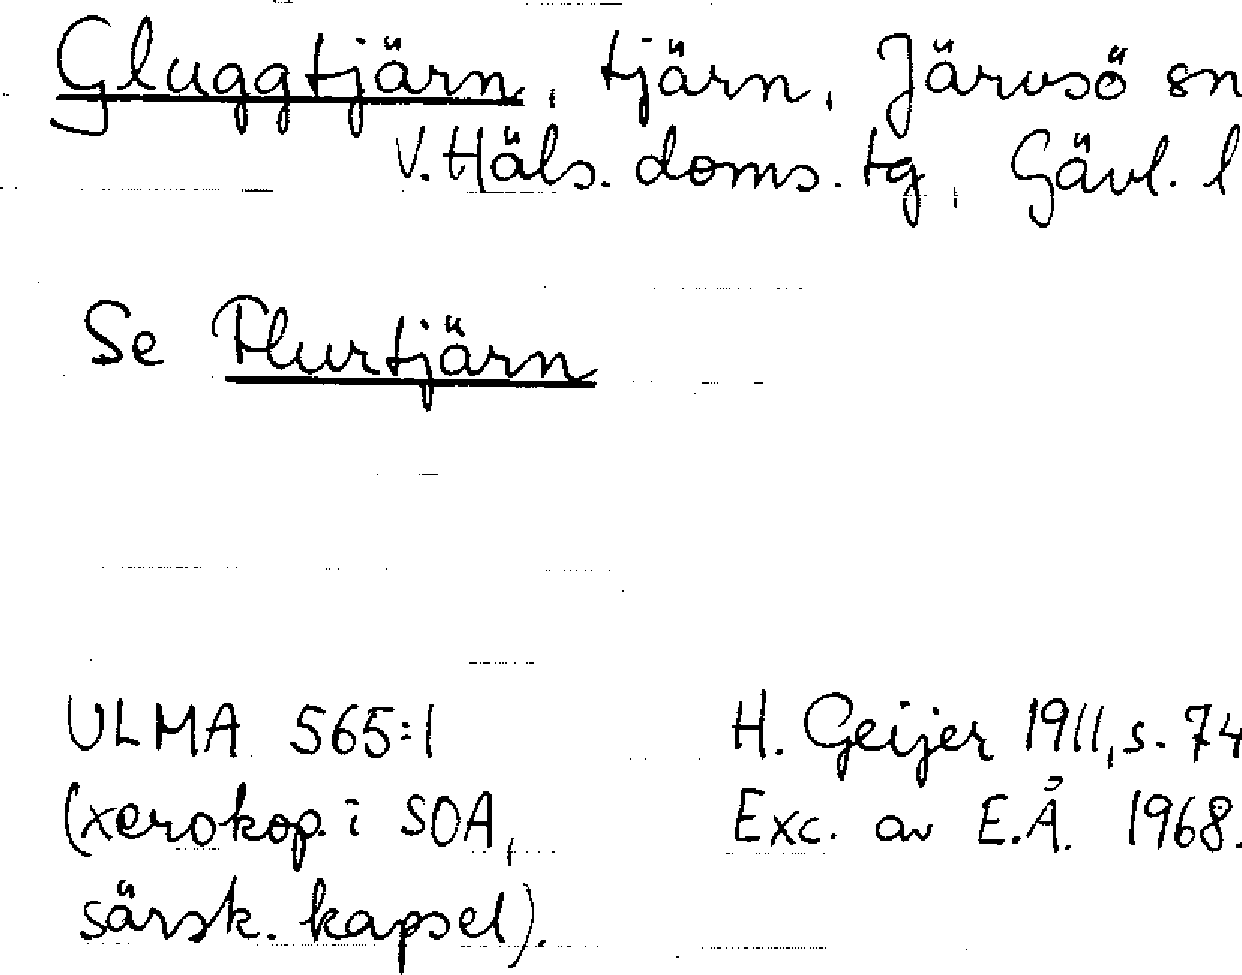 Gluggtjärn, tjärn, Järvsö sn
V. Häls. doms. tg, Gävl. l
Se Flurtjärn
ULMA 565:1 H. Geijer 1911, s. 74
(xerokop. i SOA, Exc. av E.Å. 1968.
särsk. kapsel).